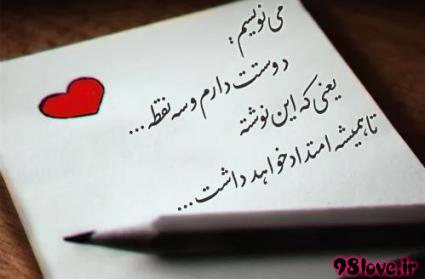 می نویسم :
دوستت دارم و سه نقطه...
یعنی که این نوشته
تا همیشه امتداد خواهد داشت...
98love.ir